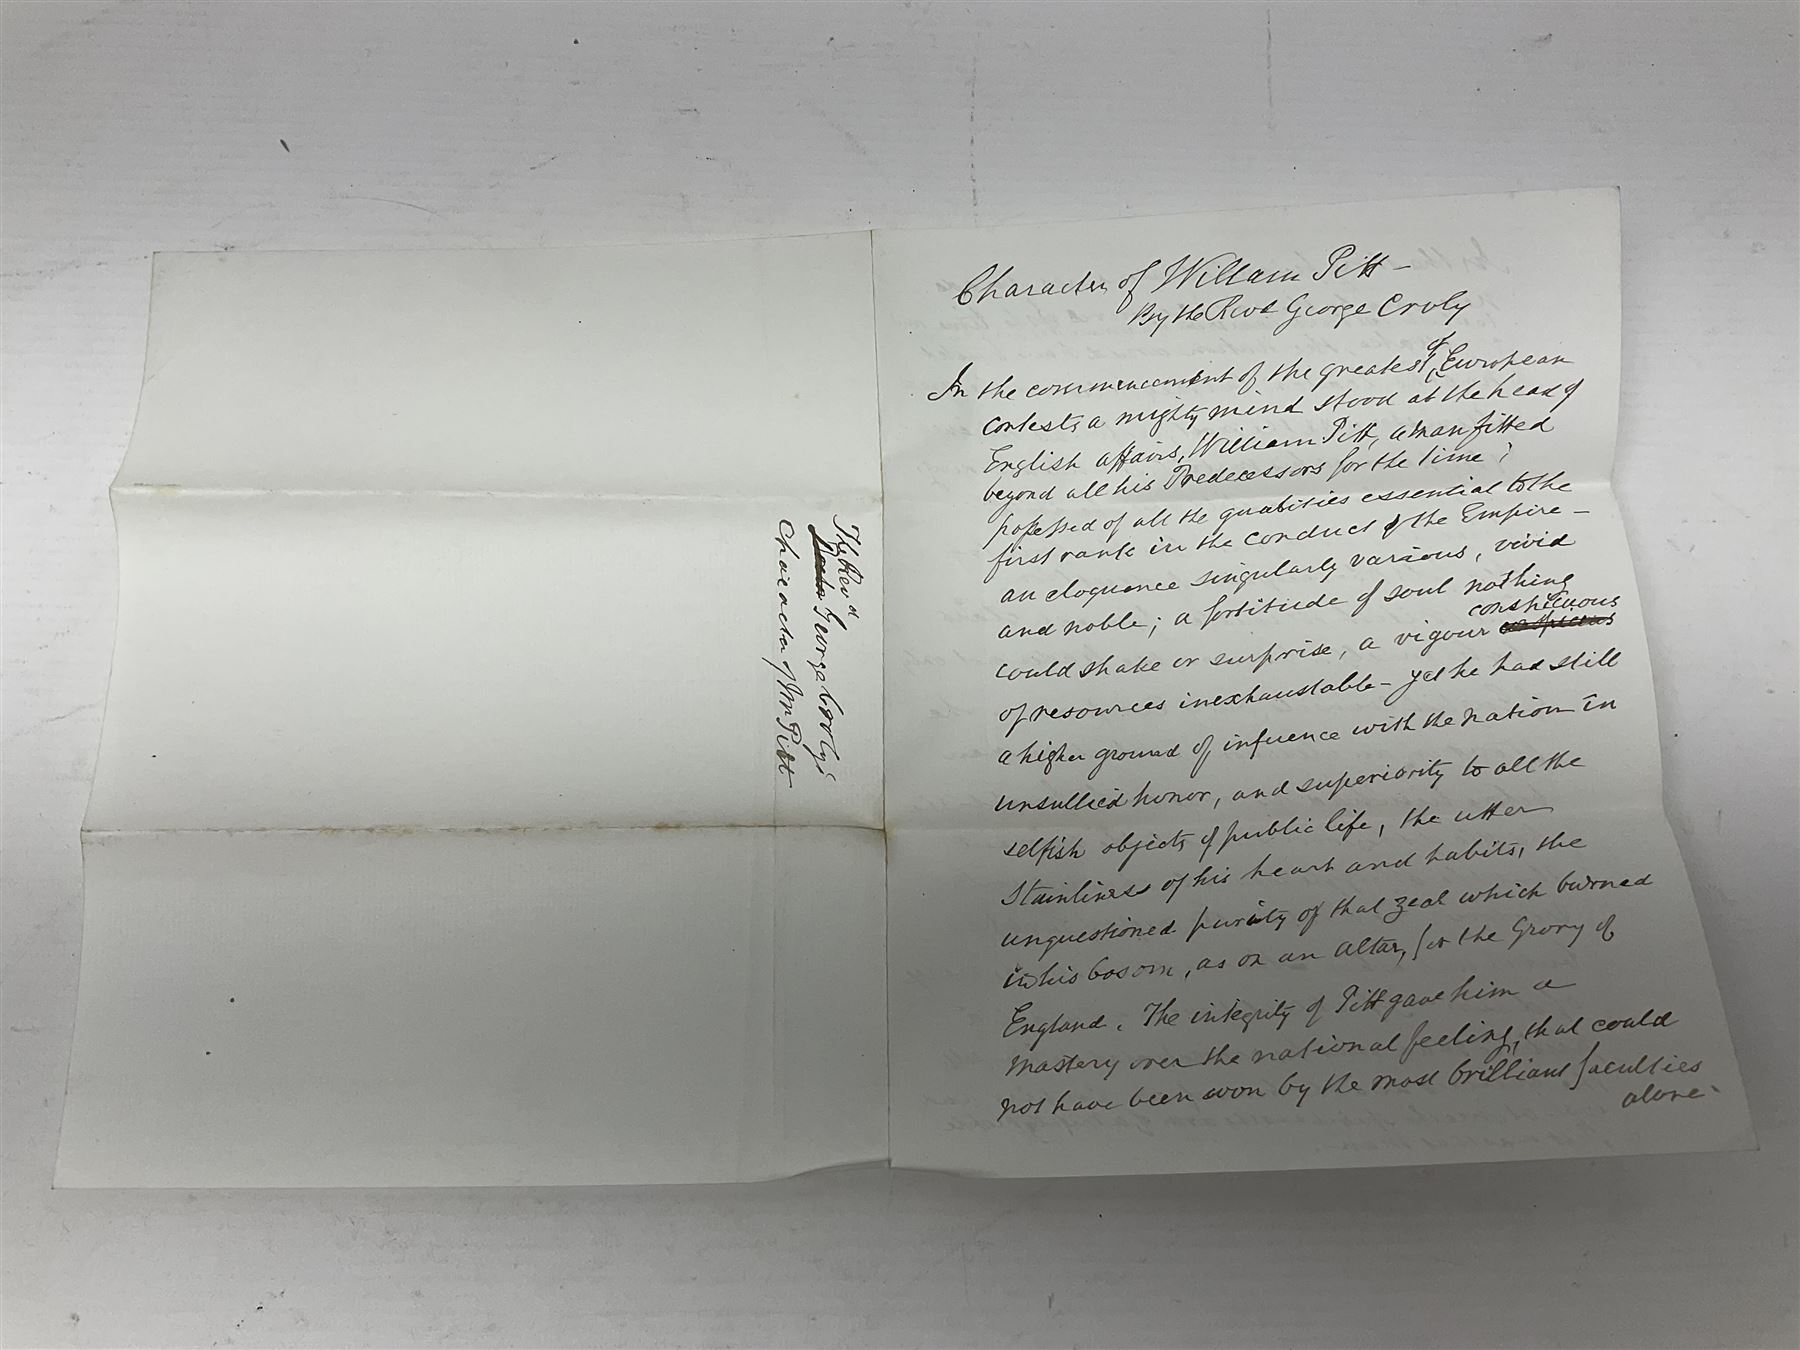 The Revd
George Croly's
Character of Mr Pitt
Character of William Pitt –
By the Revd George Croly
In the commencement of the greatest of European
contests, a mighty mind stood at the head of
English affairs, William Pitt, a man fitted
beyond all his Predecessors for the time;
possessed of all the qualities essential to the
first rank in the conduct of the Empire –
an eloquence singularly various, vivid
and noble; a fortitude of soul nothing
could shake or surprise, a vigour conspicuous
of resources inexhaustable – yet he had still
a higher ground of infuence with the nation in
unsullied honor, and superiority to all the
selfish objects of public life, the utter
stainliness of his heart and habits, the
unquestioned purity of that zeal which burned
in his bosom, as on an altar, for the Glory of
England. The integrity of Pitt gave him a
mastery over the national feeling, that could
not have been won by the most brilliant faculties
alone –